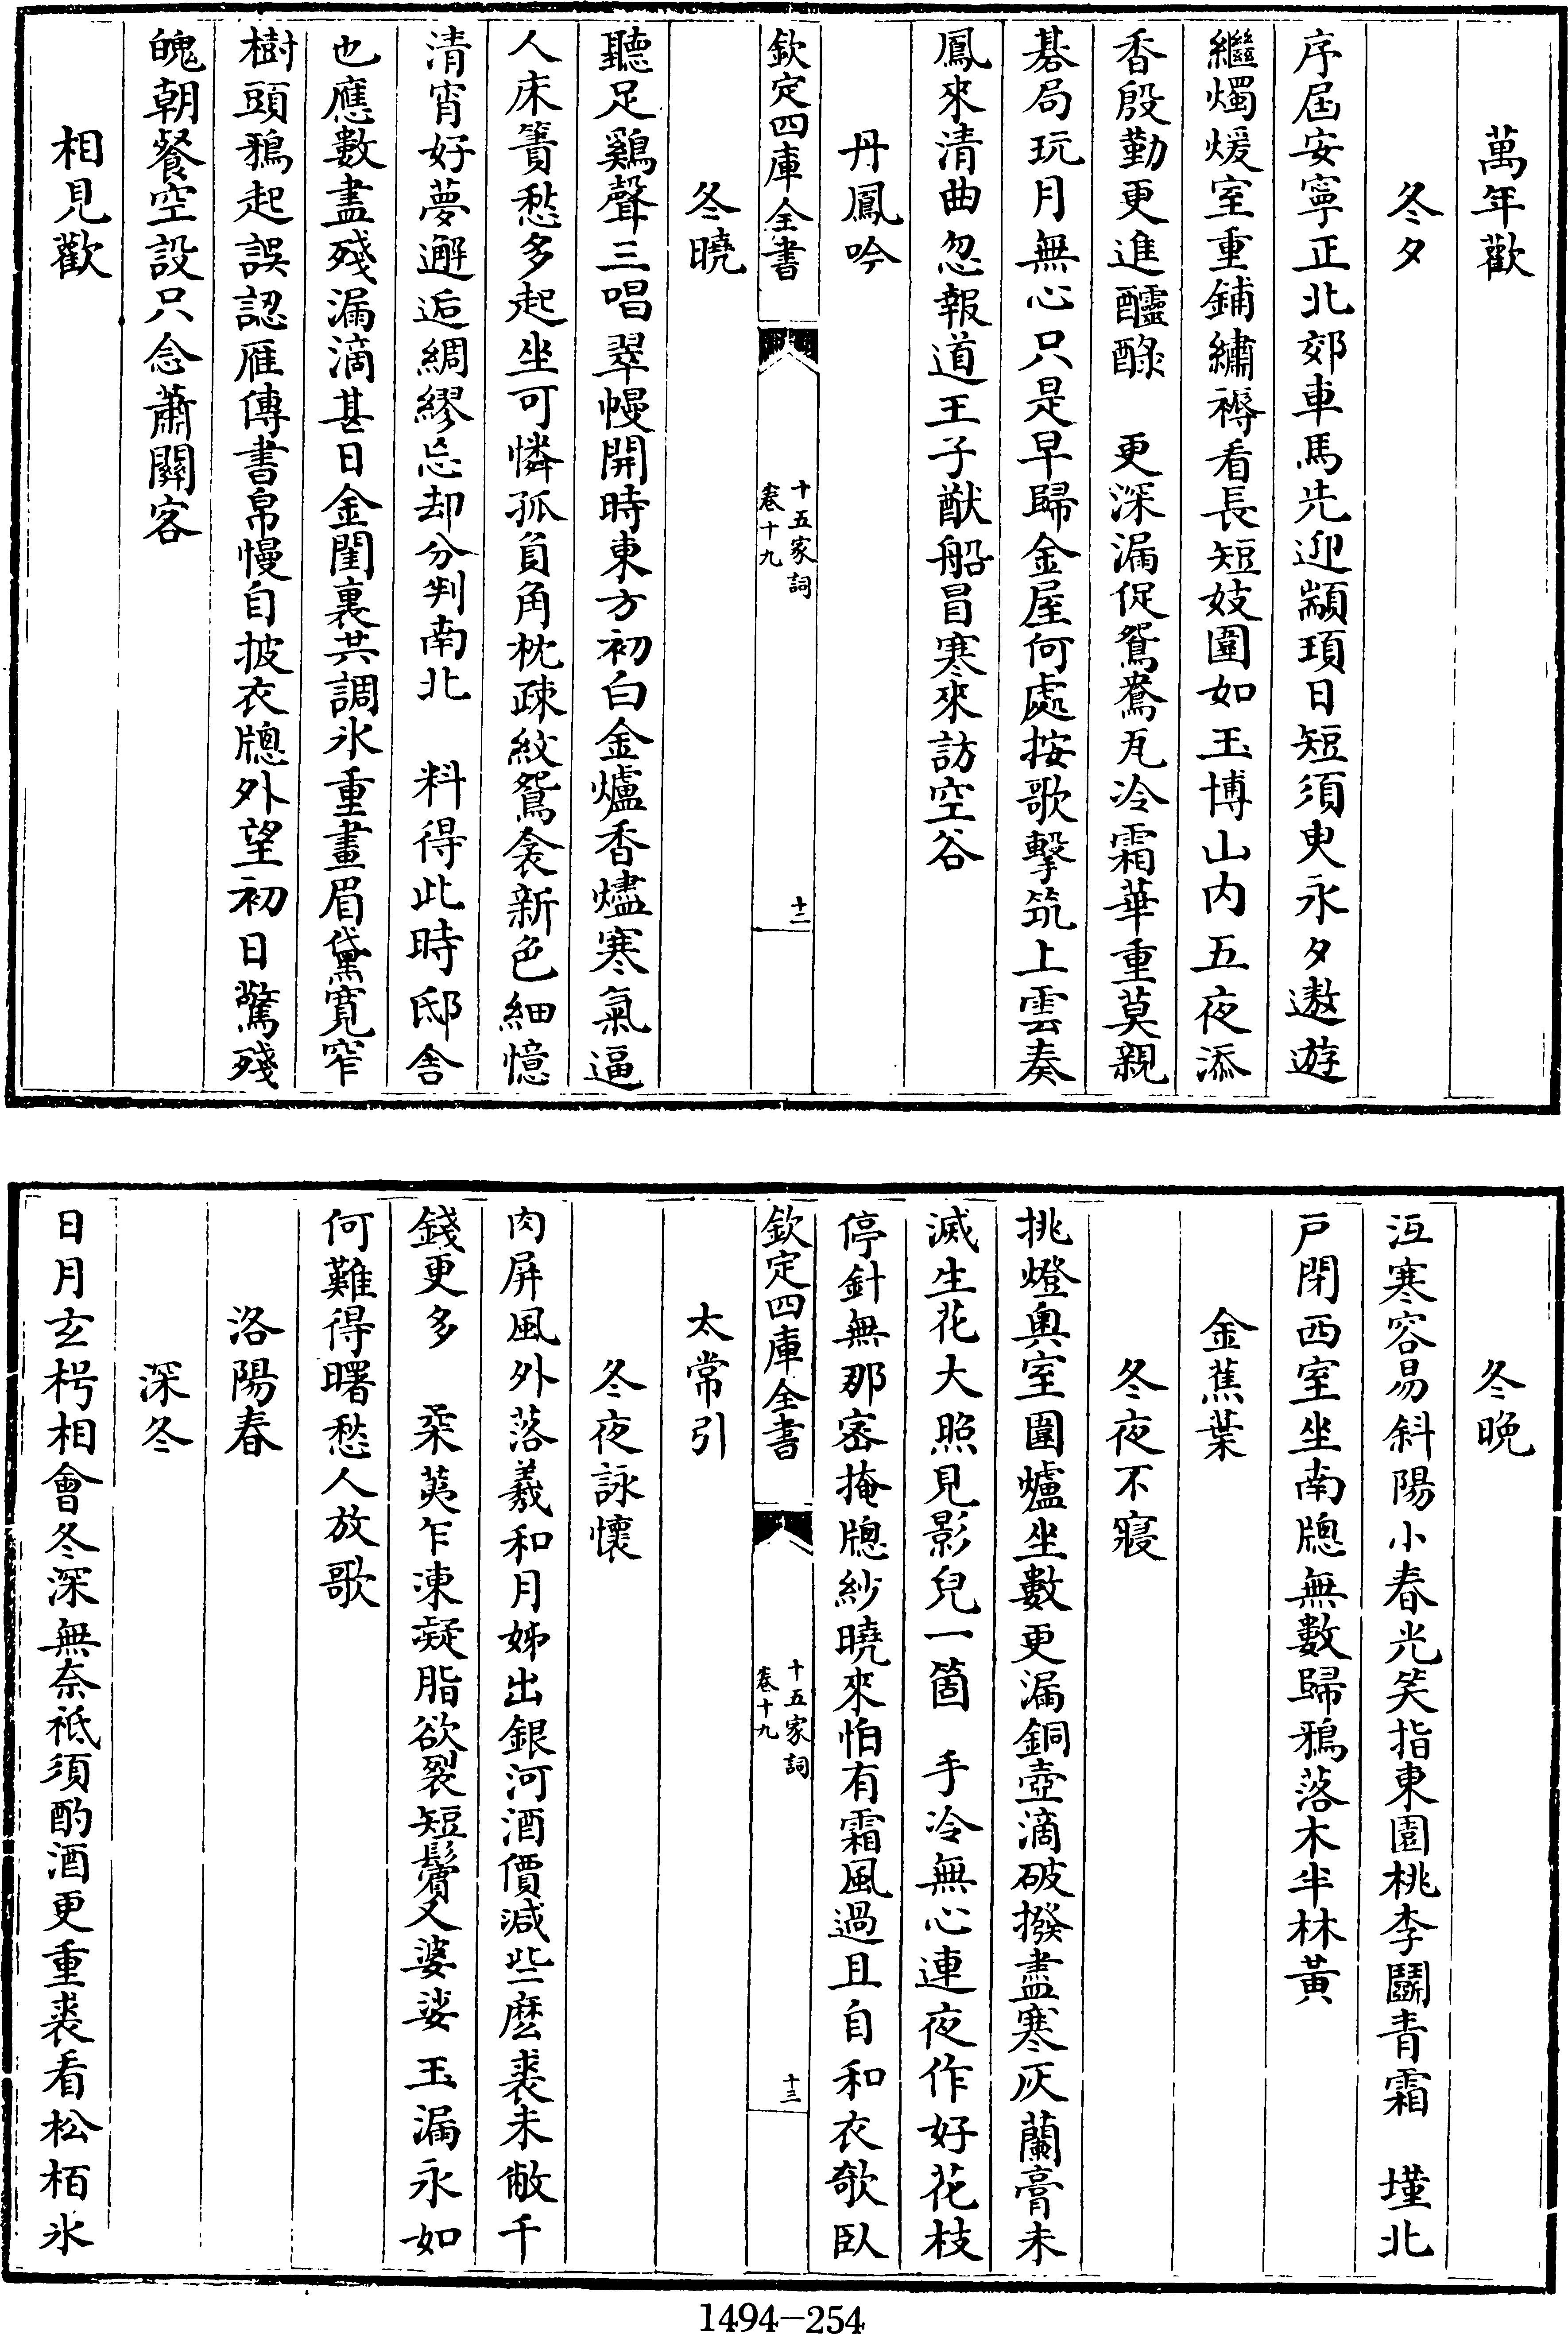 萬年歡
冬夕
序屆安寧正北郊車馬先迎顓頊日短須臾永夕遨遊
繼燭煖室重鋪繡褥看長短妓圍如玉博山内五夜添
香殷勤更進醽醁　更深漏促鴛鴦瓦冷霜華重莫親
碁局玩月無心只是早歸金屋何處按歌擊筑上雲奏
鳳來清曲忽報道王子猷船冒寒來訪空谷
丹鳳吟
欽定四庫全書
十五家詞
卷十九
十二
冬曉
聽足鷄聲三唱翠幔開時東方初白金爐香燼寒氣逼
人床簀愁多起坐可憐孤負角枕疎紋鴛衾新色細憶
清宵好夢邂逅綢繆忘却分判南北　料得此時邸舍
也應數盡殘漏滴甚日金閨裏共調氷重畫眉黛寛窄
樹頭鴉起誤認雁傳書帛慢自披衣牕外望初日驚殘
魄朝餐空設只念蕭關客
相見歡
冬晚
沍寒容易斜陽小春光笑指東園桃李鬭青霜　墐北
戸閉西室坐南牕無數歸鴉落木半林黄
金蕉葉
冬夜不寢
挑燈奥室圍爐坐數更漏銅壺滴破撥盡寒灰蘭膏未
滅生花大照見影兒一箇　手冷無心連夜作好花枝
停針無那密掩牕紗曉來怕有霜風過且自和衣欹臥
欽定四庫全書
十五家詞
卷十九
十三
太常引
冬夜詠懷
肉屏風外落羲和月姊出銀河酒價減些麽裘未敝千
錢更多　葇荑乍凍凝脂欲裂短鬢又婆娑玉漏永如
何難得曙愁人放歌
洛陽春
深冬
日月玄枵相會冬深無奈祗須酌酒更重裘看松栢氷
1494—254